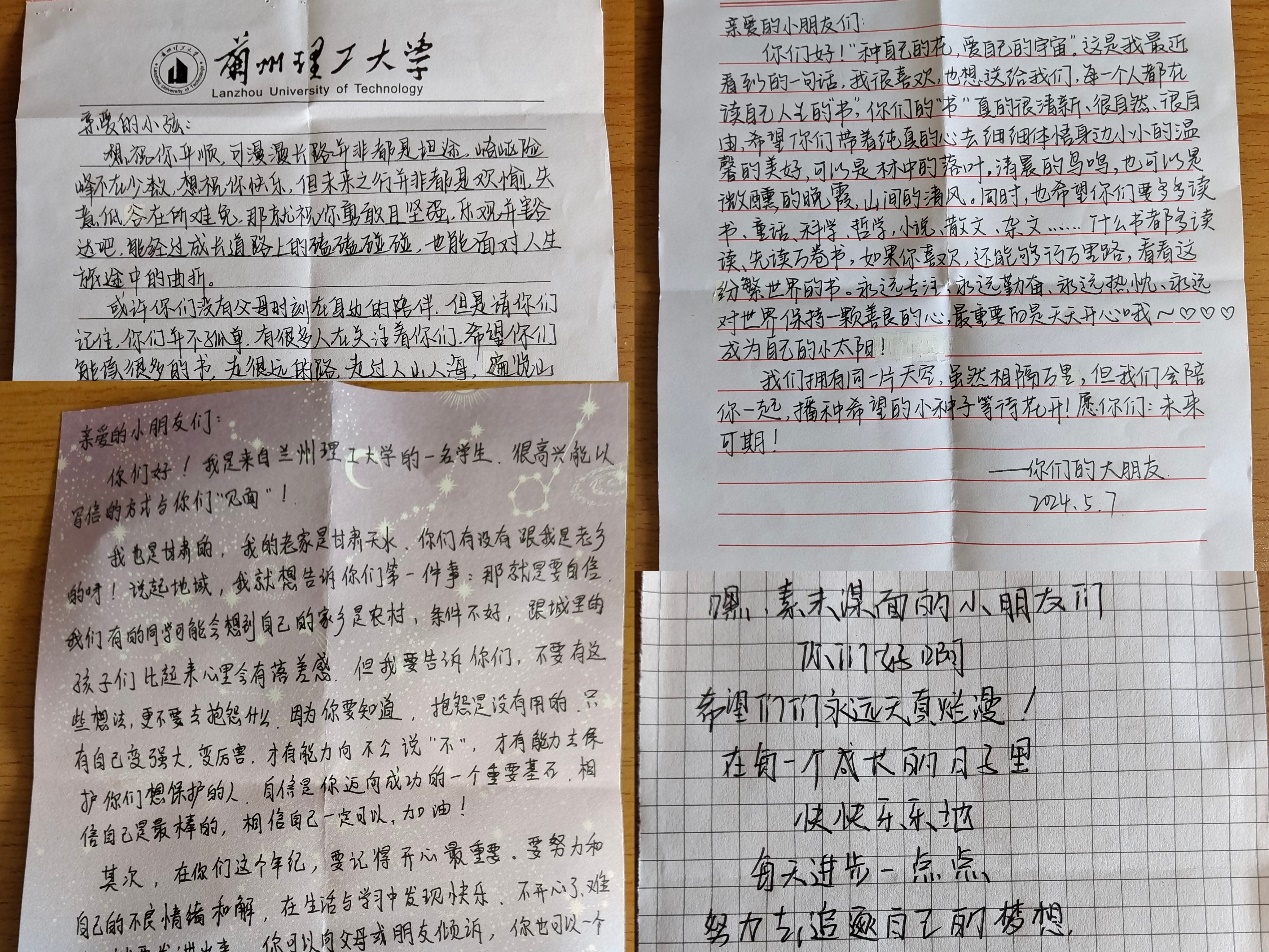 蘭州理工大学
Lanzhou University of Technology
亲爱的小孩:
想祝你平顺,可漫漫长路并非都是坦途,崎岖险
峰不在少数,想祝你快乐,但未来之行并非都是欢愉,失
意低谷在所难免,那就祝你勇敢且坚强,乐观并豁
达吧,能经过成长道路上的磕磕碰碰,也能面对人生
旅途中的曲折。
或许你们没有父母时刻在身边的陪伴,但是请你们
记住,你们并不孤单,有很多人在关注着你们,希望你们
能读很多的书,走很远的路,走过人山人海,遍览山
亲爱的小朋友们:
你们好!“种自己的花,爱自己的宇宙”,这是我最近
看到的一句话,我很喜欢,也想送给我们,每一个人都在
读自己人生的“书”,你们的“书”真的很清新、很自然、很自
由,希望你们带着纯真的心去细细体悟身边小小的温
馨的美好,可以是林中的落叶,清晨的鸟鸣,也可以是
微醺的晚霞,山间的清风。同时,也希望你们要多多读
书,童话、科学、哲学,小说、散文、杂文……什么书都多读
读,先读万卷书,如果你喜欢,还能够行万里路,看看这
纷繁世界的书。永远专注,永远勤奋,永远热忱,永远
对世界保持一颗善良的心,最重要的是天天开心哦~♡♡♡
成为自己的小太阳!
我们拥有同一片天空,虽然相隔万里,但我们会陪
你一起,播种希望的小种子等待花开!愿你们:未来
可期!
——你们的大朋友
2024.5.7
亲爱的小朋友们:
你们好!我是来自兰州理工大学的一名学生,很高兴能以
写信的方式与你们“见面”!
我也是甘肃的,我的老家是甘肃天水,你们有没有跟我是老乡
的呀!说起地域,我就想告诉你们第一件事:那就是要自信.
我们有的同学可能会想到自己的家乡是农村,条件不好,跟城里的
孩子们比起来心里会有落差感.但我要告诉你们,不要有这
些想法,更不要去抱怨什么.因为你要知道,抱怨是没有用的.只
有自己变强大,变厉害,才有能力向不公说“不”,才有能力去保
护你们想保护的人.自信是你迈向成功的一个重要基石.相
信自己是最棒的,相信自己一定可以,加油!
其次,在你们这个年纪,要记得开心最重要。要努力和
自己的不良情绪和解,在生活与学习中发现快乐.不开心了,难
你可以向父母或朋友倾诉,你也可以一个
嘿,素未谋面的小朋友们
你们好啊
希望你们永远天真烂漫!
在每一个成长的日子里
快快乐乐地
每天进步一点点
努力去追逐自己的梦想